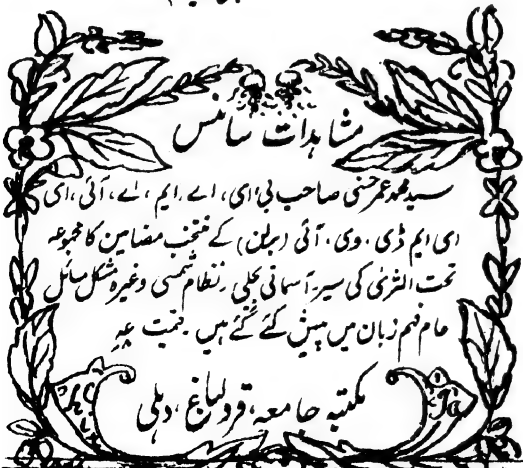 مشاہدات سائنس
سید محمد عمر حسنی صاحب بی، ای، اے، ایم، اے، آئی، ای
ای ایم ڈی، وی، آئی (برلن) کے منتخب مضامین کا مجموعہ
تحت الثریٰ کی سیر۔ آسمانی بجلی۔ نظام شمسی وغیرہ مشکل مسائل
عام فہم زبان میں پیش کئے گئے ہیں۔ قیمت
مکتبہ جامعہ، قرولباغ، دہلی